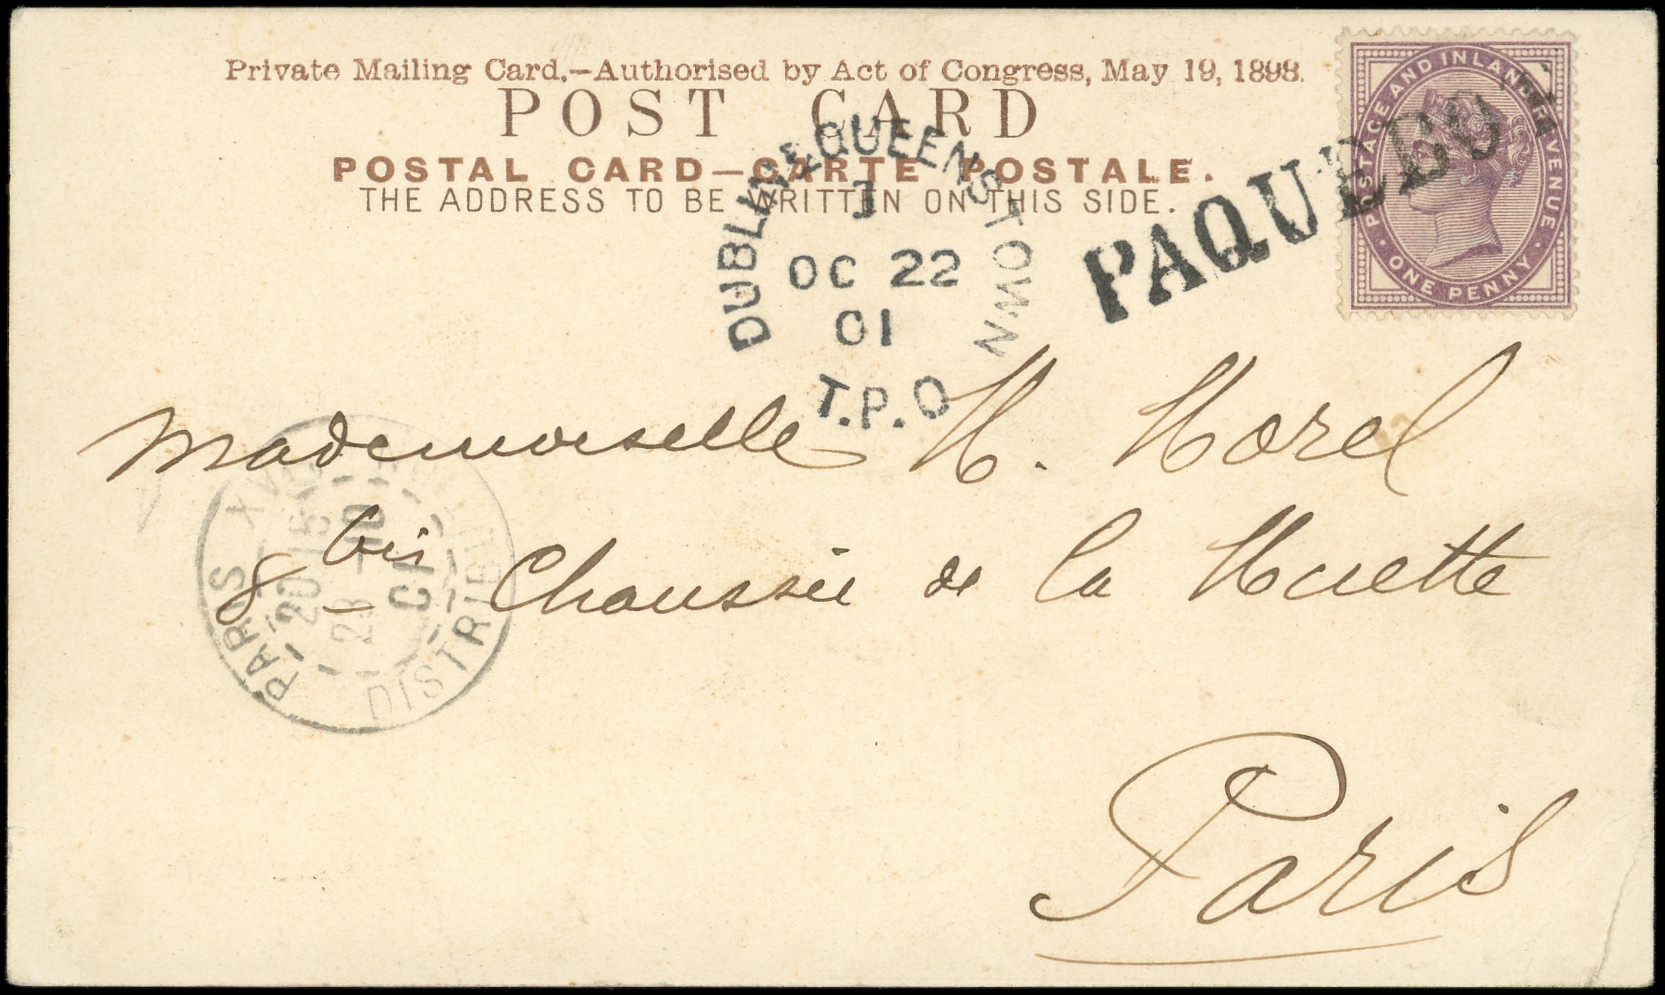 Private Mailing Card.—Authorised by Act of Congress, May 19, 1898.
POST CARD
POSTAL CARD—CARTE POSTALE.
THE ADDRESS TO BE WRITTEN ON THIS SIDE.
POSTAGE AND INLAND REVENUE
ONE PENNY
PAQUEBOT
DUBLIN & QUEENSTOWN
OC 22
01
T.P.O
Mademoiselle M. Morel
8 bis Chaussée de la Muette
Paris
PARIS XVI
DISTRIBUTION
20 15
23 - 10
01